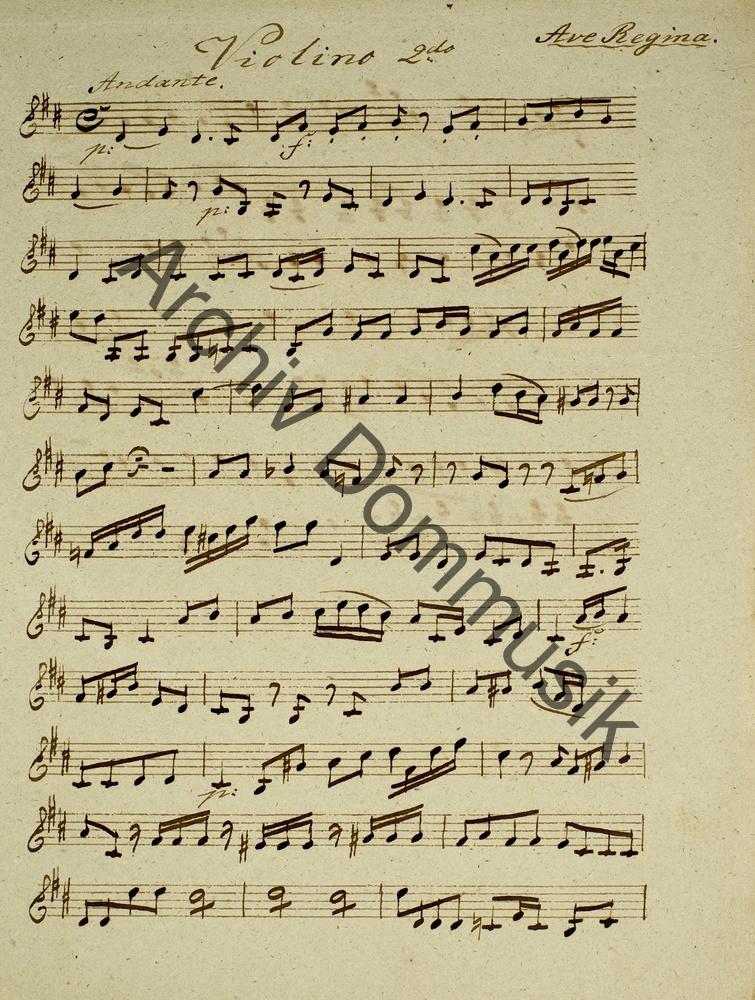 Violino 2do Ave Regina.
Andante.
p:
f:
p:
f:
p:
Archiv Dommusik